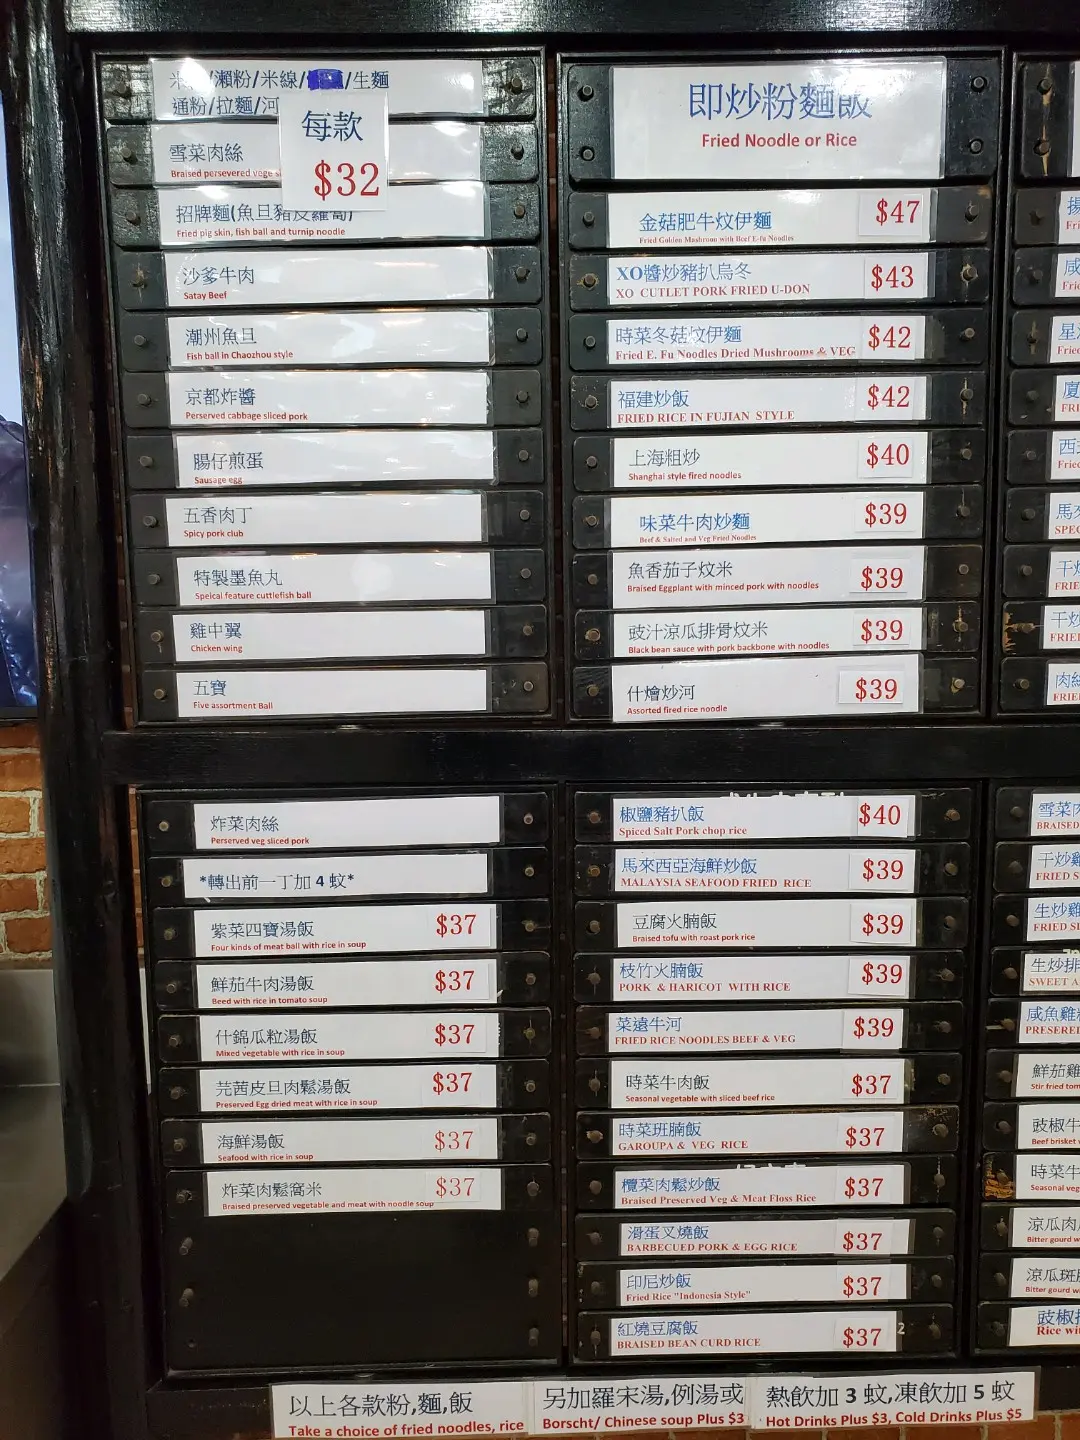 /瀨粉/米線/ /生麵
通粉/拉麵/河
每款
$32
雪菜肉絲
Braised persevered vege s
招牌麵(魚旦豬皮蘿蔔)
Fried pig skin, fish ball and turnip noodle
沙爹牛肉
Satay Beef
潮州魚旦
Fish ball in Chaozhou style
京都炸醬
Perserved cabbage sliced pork
腸仔煎蛋
Sausage egg
五香肉丁
Spicy pork club
特製墨魚丸
Speical feature cuttlefish ball
雞中翼
Chicken wing
五寶
Five assortment Ball
炸菜肉絲
Perserved veg sliced pork
*轉出前一丁加 4 蚊*
紫菜四寶湯飯 $37
Four kinds of meat ball with rice in soup
鮮茄牛肉湯飯 $37
Beed with rice in tomato soup
什錦瓜粒湯飯 $37
Mixed vegetable with rice in soup
芫茜皮旦肉鬆湯飯 $37
Preserved Egg dried meat with rice in soup
海鮮湯飯 $37
Seafood with rice in soup
炸菜肉鬆窩米 $37
Braised preserved vegetable and meat with noodle soup
即炒粉麵飯
Fried Noodle or Rice
金菇肥牛炆伊麵 $47
Fried Golden Mushroom with Beef E-fu Noodles
XO醬炒豬扒烏冬 $43
XO CUTLET PORK FRIED U-DON
時菜冬菇炆伊麵 $42
Fried E. Fu Noodles Dried Mushrooms & VEG
福建炒飯 $42
FRIED RICE IN FUJIAN STYLE
上海粗炒 $40
Shanghai style fired noodles
味菜牛肉炒麵 $39
Beef & Salted and Veg Fried Noodles
魚香茄子炆米 $39
Braised Eggplant with minced pork with noodles
豉汁涼瓜排骨炆米 $39
Black bean sauce with pork backbone with noodles
什燴炒河 $39
Assorted fired rice noodle
椒鹽豬扒飯 $40
Spiced Salt Pork chop rice
馬來西亞海鮮炒飯 $39
MALAYSIA SEAFOOD FRIED RICE
豆腐火腩飯 $39
Braised tofu with roast pork rice
枝竹火腩飯 $39
PORK & HARICOT WITH RICE
菜遠牛河 $39
FRIED RICE NOODLES BEEF & VEG
時菜牛肉飯 $37
Seasonal vegetable with sliced beef rice
時菜班腩飯 $37
GAROUPA & VEG RICE
欖菜肉鬆炒飯 $37
Braised Preserved Veg & Meat Floss Rice
滑蛋叉燒飯 $37
BARBECUED PORK & EGG RICE
印尼炒飯 $37
Fried Rice "Indonesia Style"
紅燒豆腐飯 $37
BRAISED BEAN CURD RICE
2
揚
Fri
咸
Frie
星
Fried
廈
FRI
西
Fried
馬來
SPEC
干炒
FRIE
干炒
FRIE
肉絲
FRIE
雪菜肉
BRAISED
干炒雞
FRIED S
生炒雞
FRIED SI
生炒排
SWEET A
咸魚雞
PRESERED
鮮茄雞
Stir fried tom
豉椒牛
Beef brisket
時菜牛
Seasonal veg
涼瓜肉
Bitter gourd w
涼瓜斑
Bitter gourd w
豉椒
Rice wi
以上各款粉,麵,飯 另加羅宋湯,例湯或 熱飲加 3 蚊,凍飲加 5 蚊
Take a choice of fried noodles, rice Borscht/ Chinese soup Plus $3 Hot Drinks Plus $3, Cold Drinks Plus $5